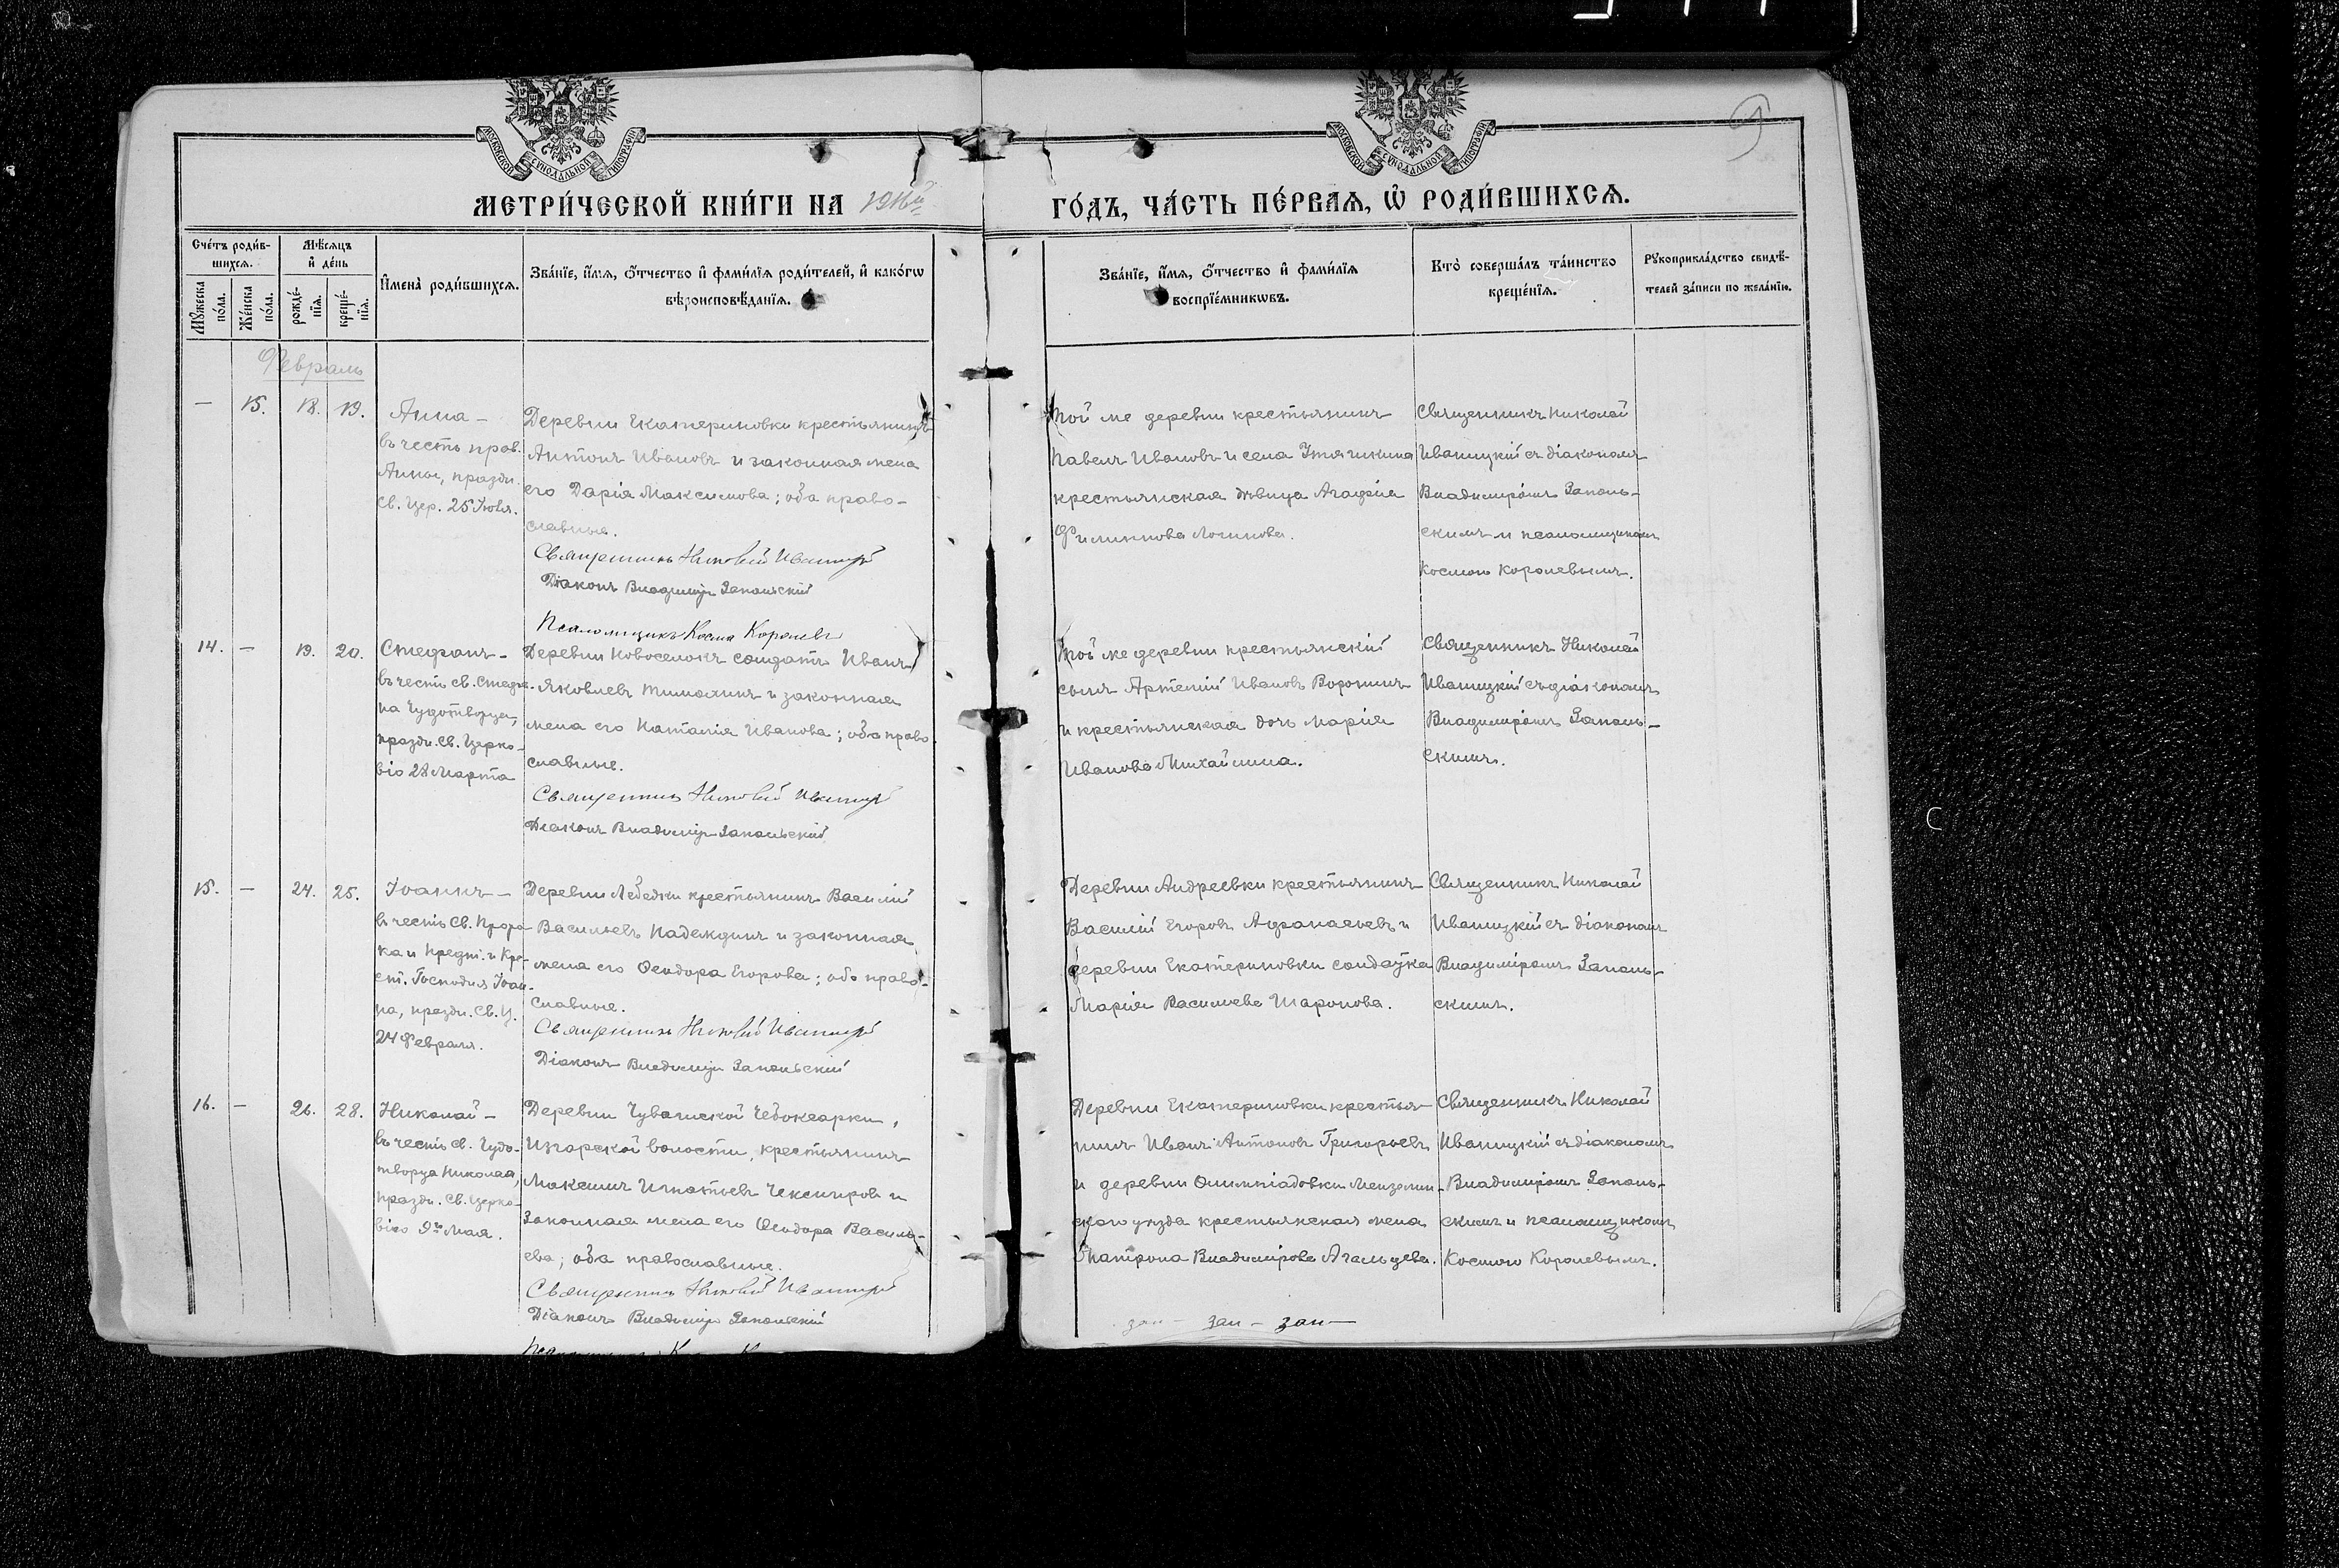 МОСКОВСКОЙ СѴНОДАЛЬНОЙ ТИПОГРАФІИ
МОСКОВСКОЙ СѴНОДАЛЬНОЙ ТИПОГРАФІИ
МЕТРИ́ЧЕСКОЙ КНИ́ГИ НА
ГО́ДЪ, ЧА́СТЬ ПЕ́РВАѦ, Ѡ҆ РОДИ́ВШИХСѦ.
Сче́тъ роди́в-
шихсѧ.
Мѣ́сѧцъ
и҆ де́нь
Мꙋ́жеска по́ла.
Же́нска по́ла.
рожде́-
нїѧ.
креще́-
нїѧ.
И҆мена̀ роди́вшихсѧ.
Зва́нїе, и҆́мѧ, ѻ҆́тчество и҆ фами́лїѧ роди́телей, и҆ како́гѡ
вѣроисповѣ́данїѧ.
Зва́нїе, и҆́мѧ, ѻ҆́тчество и҆ фами́лїѧ
воспрїе́мникѡвъ.
Кто̀ соверша́лъ та́инство
креще́нїѧ.
Рꙋкоприкла́дство свидѣ́-
телей за́писи по жела́нїю.
Февраль
— 15. 18. 19.
Анна —
въ честь прав.
Анны, праздн.
Св. Цер. 25 Іюля.
Деревни Екатериновки крестьянинъ
Антонъ Ивановъ и законная жена
его Дарія Максимова; оба право-
славные.
Священникъ Николай Иваницкій
Діаконъ Владиміръ Запольскій
Псаломщикъ Косма Королевъ
Той же деревни крестьянинъ
Павелъ Ивановъ и села
крестьянская дѣвица Агафія
Филиппова Логинова.
Священникъ Николай
Иваницкій съ діакономъ
Владиміромъ Заполь-
скимъ и псаломщикомъ
Космою Королевымъ.
14. — 19. 20.
Стефанъ —
въ честь св. Стефа-
на Чудотворца,
праздн. Св. Церко-
вію 28 Марта
Деревни Новоселокъ солдатъ Иванъ
Яковлевъ Тимохинъ и законная
жена его Наталія Иванова; оба право-
славные.
Священникъ Николай Иваницкій
Діаконъ Владиміръ Запольскій
Той же деревни крестьянскій
сынъ Артемій Ивановъ Воронинъ
и крестьянская дочь Марія
Иванова Михайлина.
Священникъ Николай
Иваницкій съ діакономъ
Владиміромъ Заполь-
скимъ.
15. — 24. 25.
Іоаннъ —
въ честь Св. Проро-
ка и Предт. и Кре-
ст. Господня Іоан-
на, праздн. Св. Ц.
24 Февраля.
Деревни Лебедки крестьянинъ Василій
Васильевъ Надеждинъ и законная
жена его Ѳеодора Егорова; оба право-
славные.
Священникъ Николай Иваницкій
Діаконъ Владиміръ Запольскій
Деревни Андреевки крестьянинъ
Василій Егоровъ Афанасьевъ и
деревни Екатериновки солдатка
Марія Васильева Шаронова.
Священникъ Николай
Иваницкій съ діакономъ
Владиміромъ Заполь-
скимъ.
16. — 26. 28.
Николай —
въ честь св. Чудо-
творца Николая,
праздн. Св. Церко-
вію 9го Мая.
Деревни Чувашской
волости, крестьянинъ
Максимъ Игнатьевъ и
законная жена его Ѳеодора Василь-
ева; оба православные.
Священникъ Николай Иваницкій
Діаконъ Владиміръ Запольскій
Деревни Екатериновки крестья-
нинъ Иванъ Антоновъ Григорьевъ
и деревни Олимпіадовки Мензелин-
скаго уѣзда крестьянская жена
Матрона Владимірова Агальцева.
Священникъ Николай
Иваницкій съ діакономъ
Владиміромъ Заполь-
скимъ и псаломщикомъ
Космою Королевымъ.